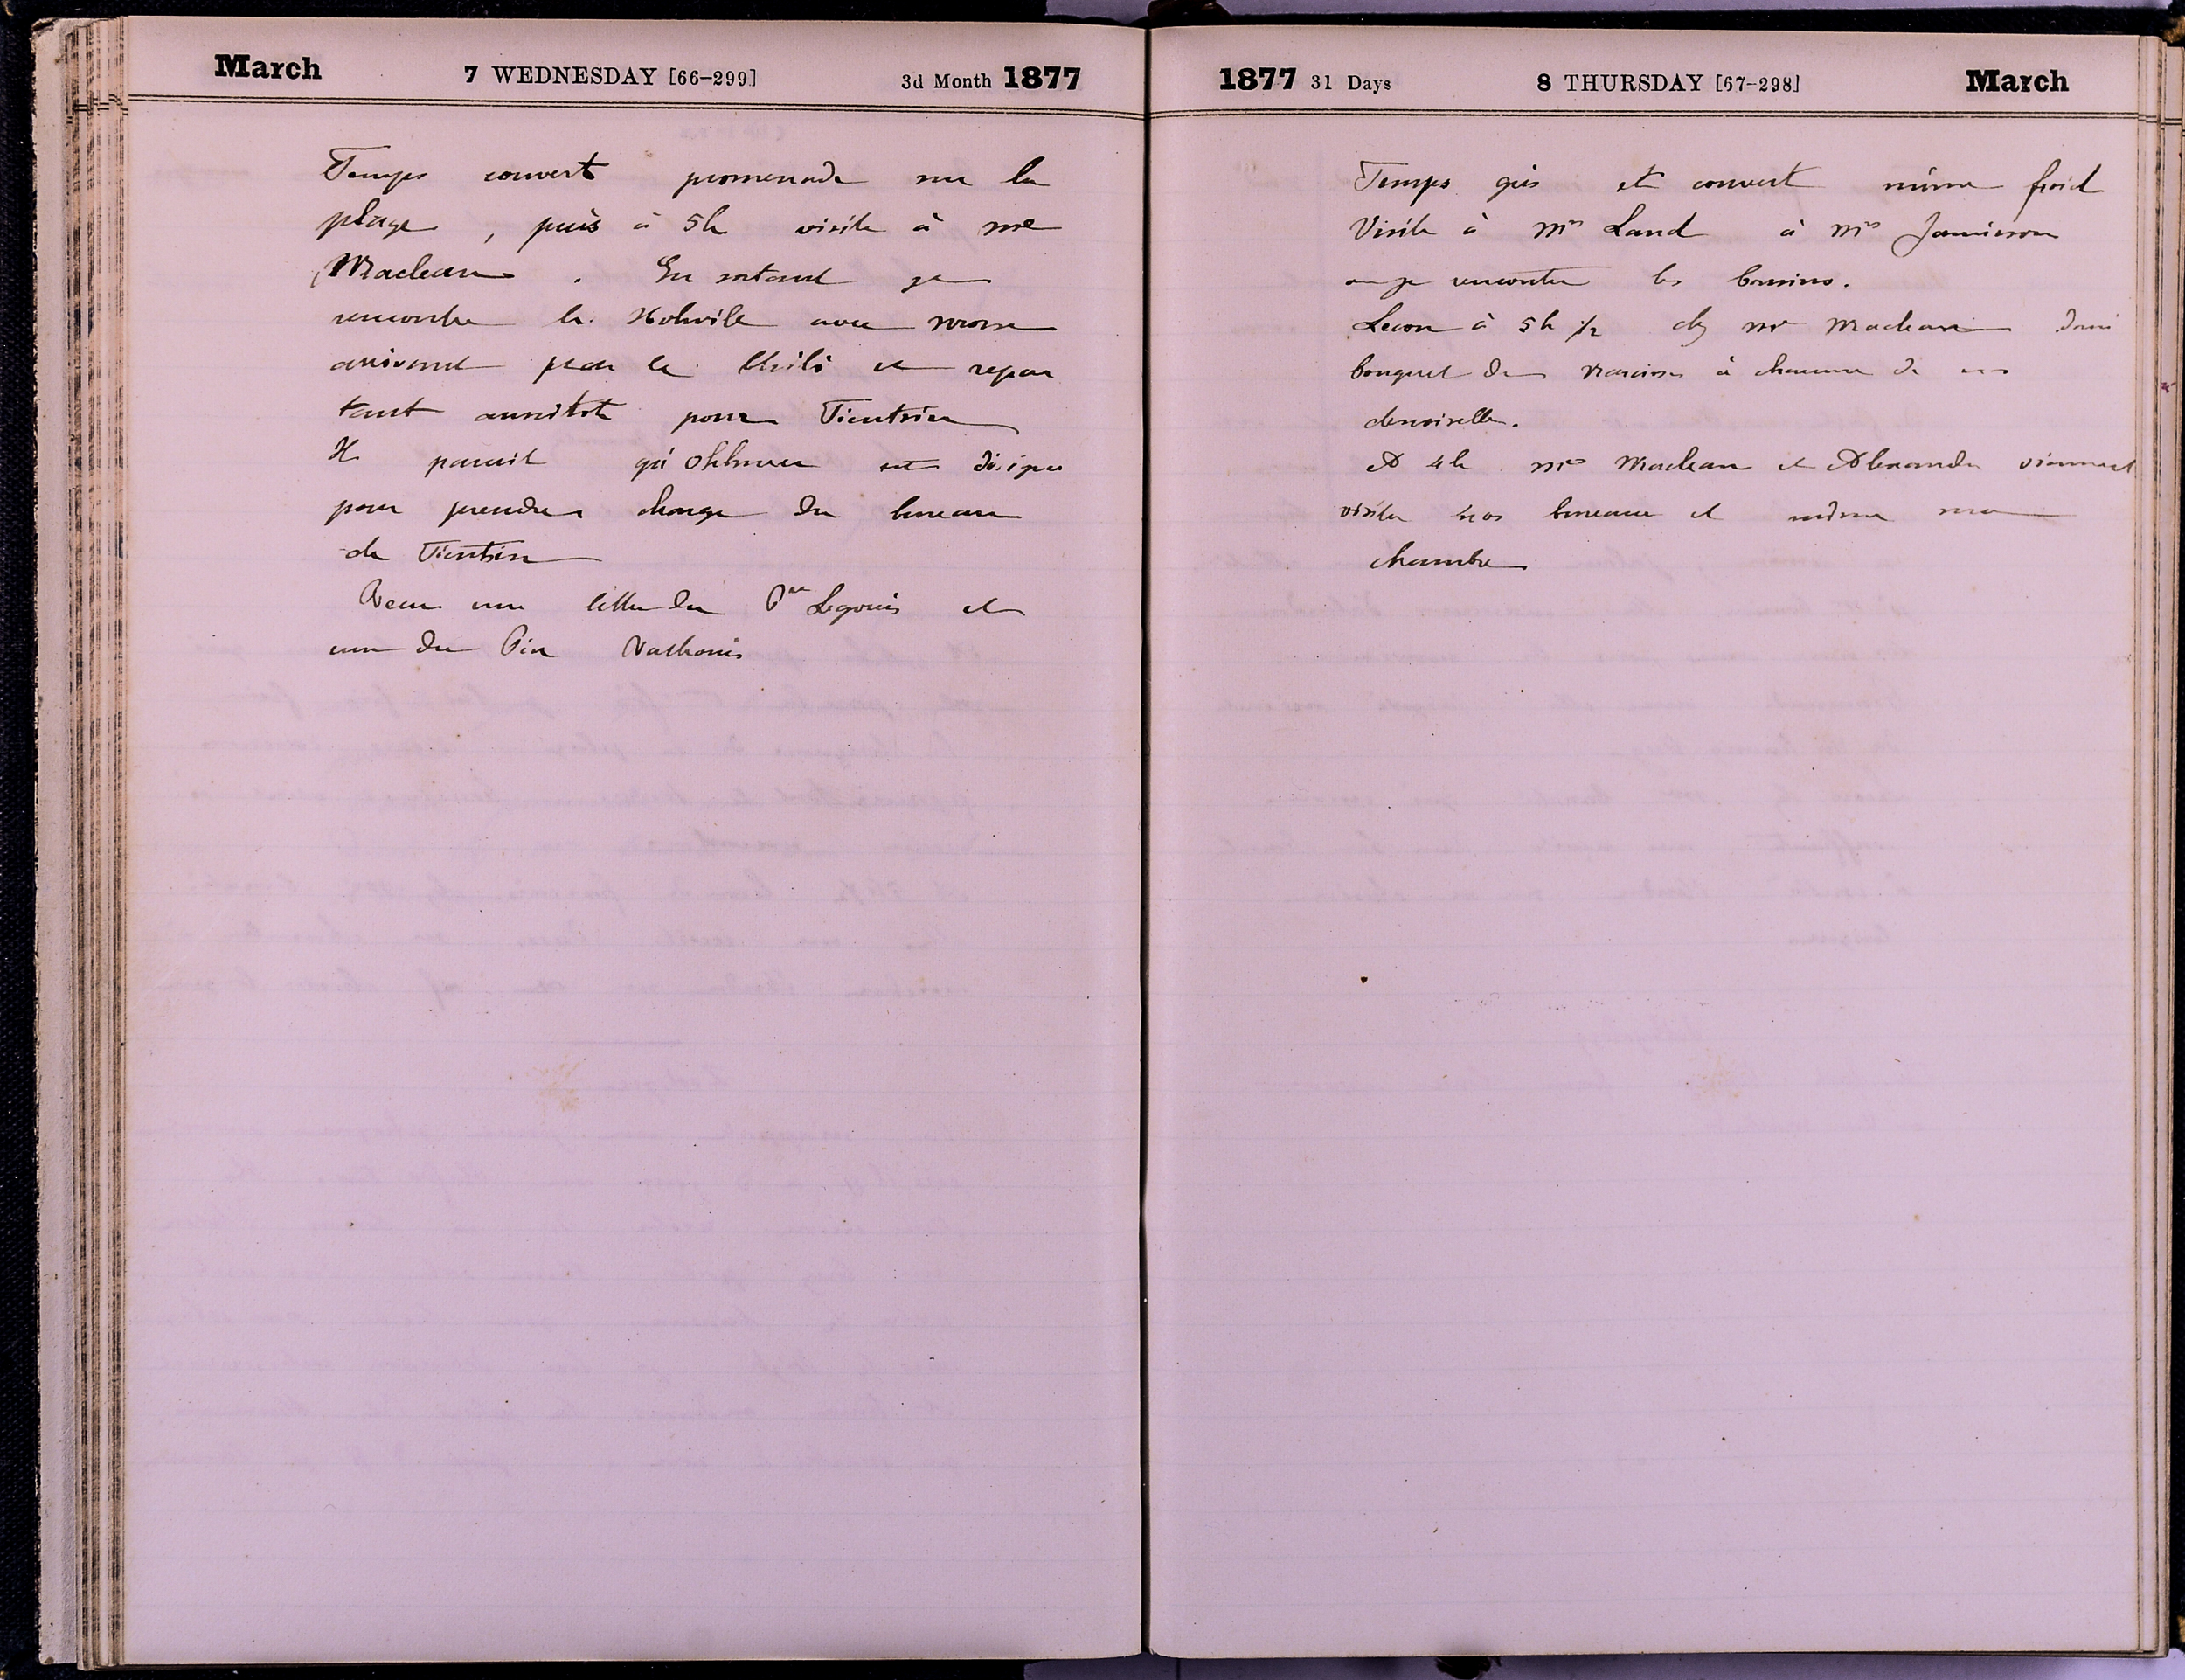 March 7 WEDNESDAY [66–299] 3d Month 1877
Temps couvert promenade sur la
plage, puis à 5h visite à me
Maclean. En sortant je
rencontre le avec
arrivant par le Chili et repar
tant aussitôt pour Tientsin
Il parait qu'Ohlmer est désigné
pour prendre charge du bureau
de Tientsin
Recu une lettre du Pere Legouis et
une du Pin
1877 31 Days 8 THURSDAY [67–298] March
Temps gris et couvert même froid
Visite à Mrs Land à Mrs Jamieson
ou je rencontre les
Lecon à 5h 1/2 chez Mr Maclean
bouquet de narcisses à chacune de ces
demoiselle.
A 4h Mrs Maclean et Alexander viennent
visiter nos bureaux et même ma
chambre